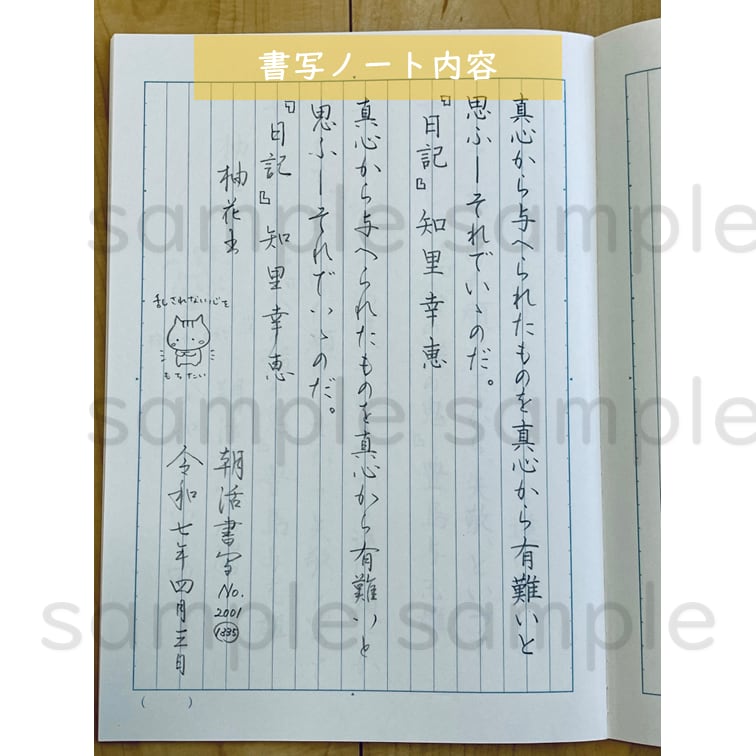 書写ノート内容
真心から与へられたものを真心から有難いと
思ふーそれでいゝのだ。
『日記』知里幸恵
真心から与へられたものを真心から有難いと
思ふーそれでいゝのだ。
『日記』知里幸恵
柚花
乱されない心を
もちたい
朝活書写No.
2001
1335
令和七年四月三日
( )
sample sample
sample sample
sample sample